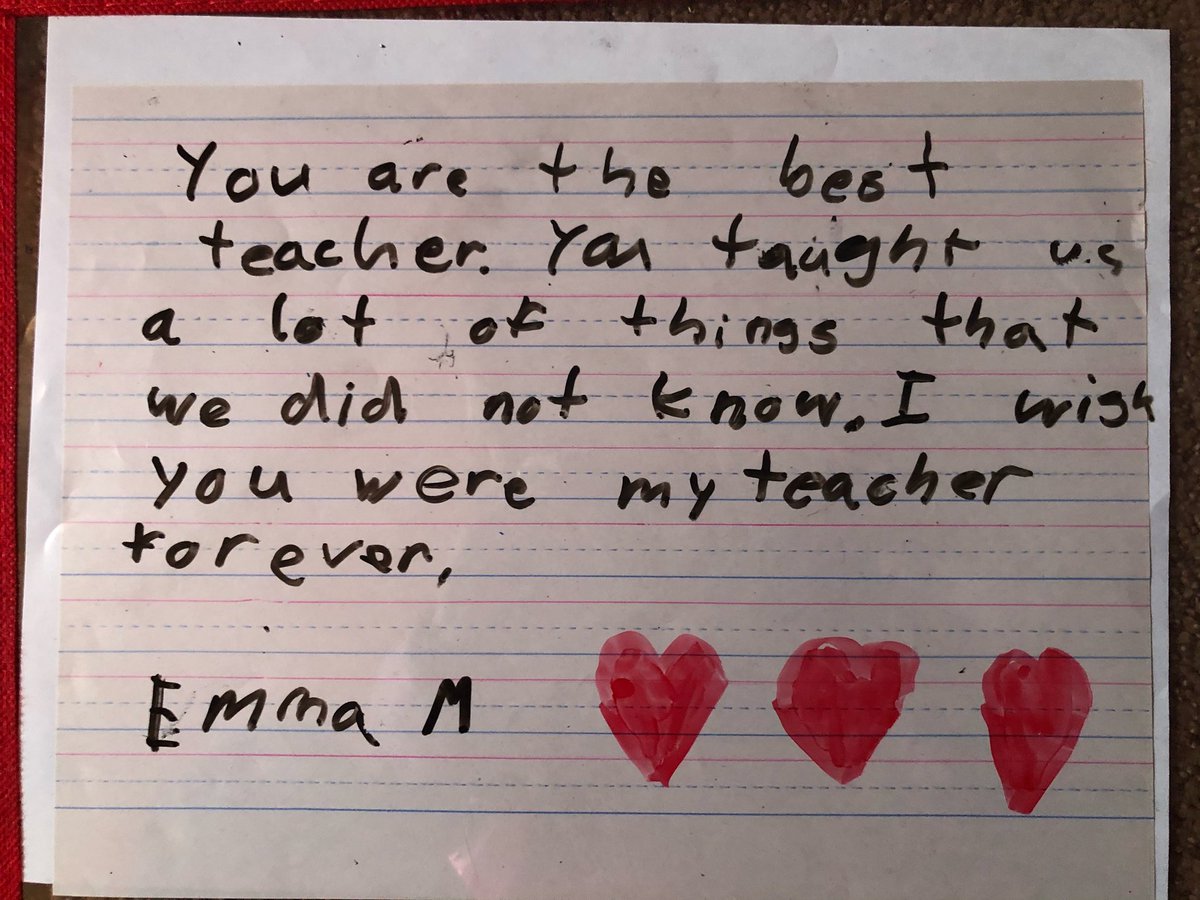 You are the best
teacher. You taught us
a lot of things that
we did not know. I wish
you were my teacher
forever.
Emma M